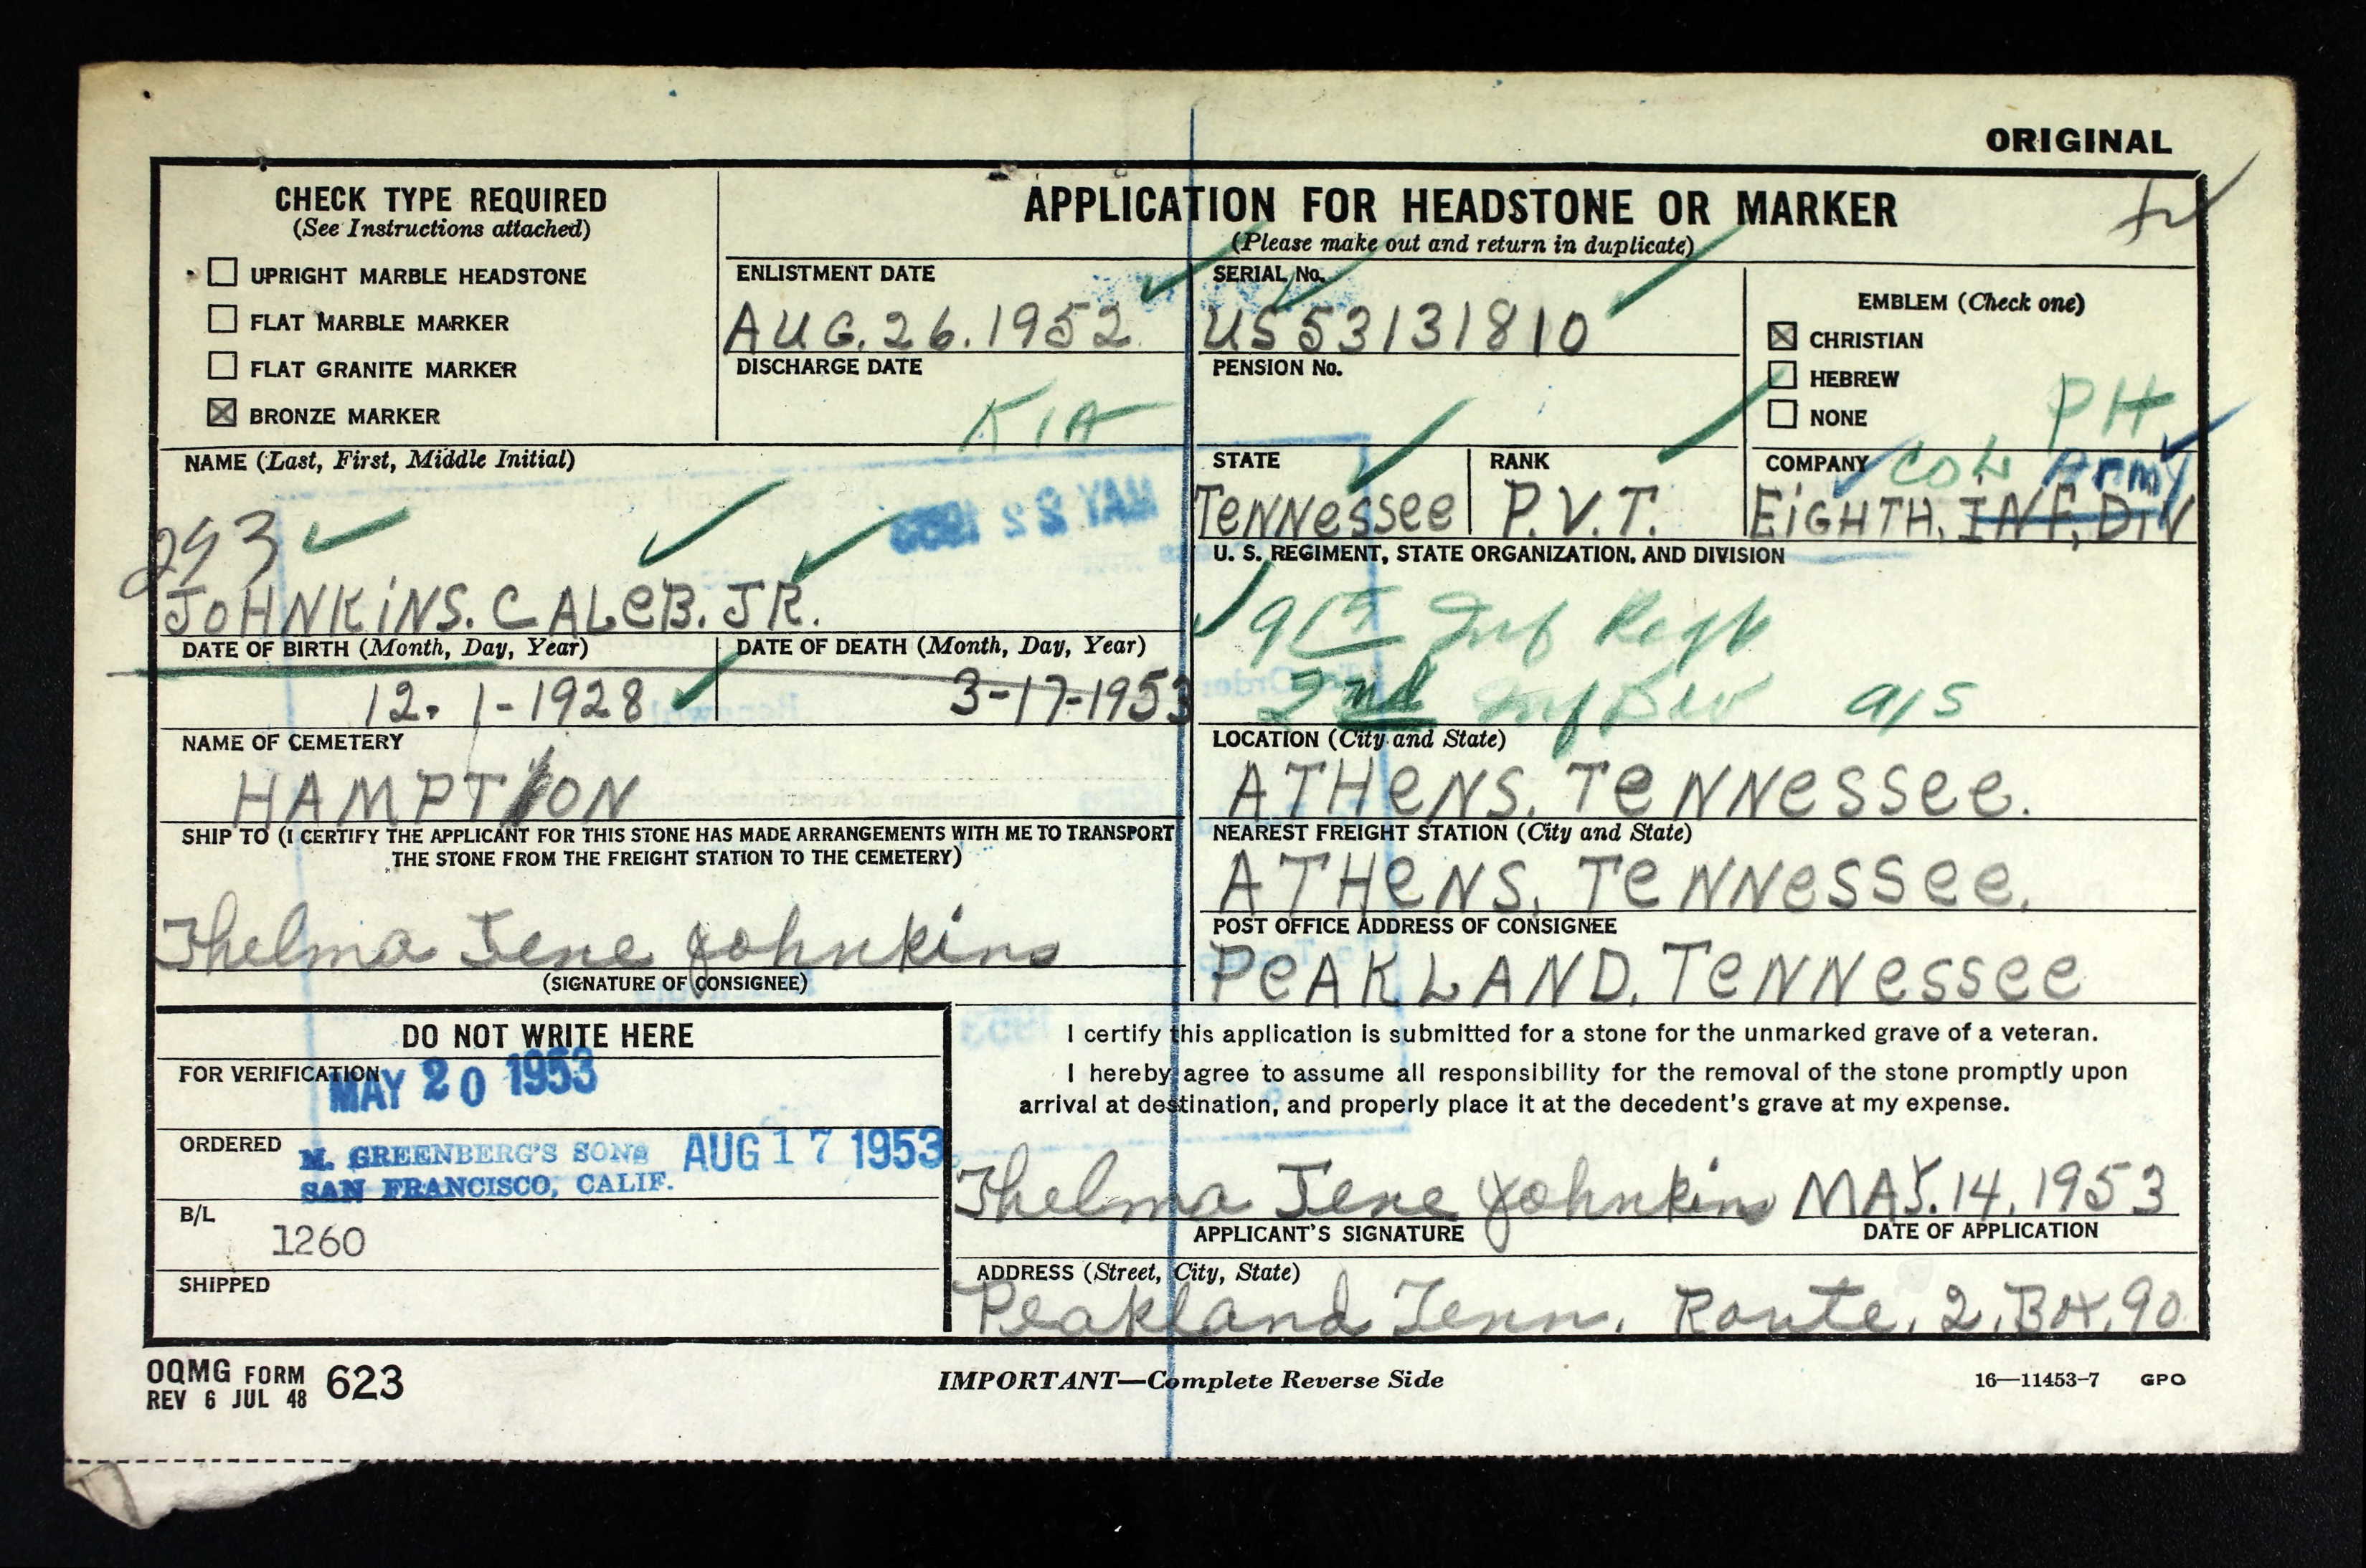 ORIGINAL
CHECK TYPE REQUIRED
(See Instructions attached)
UPRIGHT MARBLE HEADSTONE
FLAT MARBLE MARKER
FLAT GRANITE MARKER
☒ BRONZE MARKER
APPLICATION FOR HEADSTONE OR MARKER
(Please make out and return in duplicate)
ENLISTMENT DATE
AUG. 26. 1952
DISCHARGE DATE
KIA
SERIAL No.
US 53131810
PENSION No.
EMBLEM (Check one)
☒ CHRISTIAN
HEBREW
NONE
PH
NAME (Last, First, Middle Initial)
293
JOHNKiNS. CALeB. JR.
MAY 28 1953
STATE
TeNNessee
RANK
P.V.T.
COMPANY
Co L Army
EiGHTH. INF. DiV
U. S. REGIMENT, STATE ORGANIZATION, AND DIVISION
9th Inf Regt
2nd Inf Div a/s
DATE OF BIRTH (Month, Day, Year)
12. 1-1928
DATE OF DEATH (Month, Day, Year)
3-17-1953
NAME OF CEMETERY
HAMPTON
LOCATION (City and State)
ATHeNS. TeNNessee.
SHIP TO (I CERTIFY THE APPLICANT FOR THIS STONE HAS MADE ARRANGEMENTS WITH ME TO TRANSPORT
THE STONE FROM THE FREIGHT STATION TO THE CEMETERY)
Thelma Jene Johnkins
(SIGNATURE OF CONSIGNEE)
NEAREST FREIGHT STATION (City and State)
ATHeNS. TeNNessee.
POST OFFICE ADDRESS OF CONSIGNEE
PeAKLAND. TeNNessee
DO NOT WRITE HERE
FOR VERIFICATION
MAY 20 1953
ORDERED
M. GREENBERG'S SONS
SAN FRANCISCO, CALIF.
AUG 17 1953
B/L
1260
SHIPPED
I certify this application is submitted for a stone for the unmarked grave of a veteran.
I hereby agree to assume all responsibility for the removal of the stone promptly upon
arrival at destination, and properly place it at the decedent's grave at my expense.
Thelma Jene Johnkins MAY. 14. 1953
APPLICANT'S SIGNATURE
DATE OF APPLICATION
ADDRESS (Street, City, State)
Peakland Tenn. Route. 2. Box. 90
OQMG FORM 623
REV 6 JUL 48
IMPORTANT—Complete Reverse Side
16—11453-7 GPO